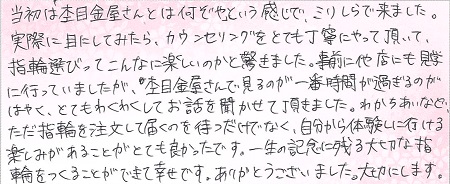 当初は杢目金屋さんとは何ぞやという感じで、ミリしらで来ました。
実際に目にしてみたら、カウンセリングをとても丁寧にやって頂いて、
指輪選びってこんなに楽しいのかと驚きました。事前に他店にも見学
に行っていましたが、杢目金屋さんで見るのが一番時間が過ぎるのが
はやく、とてもわくわくしてお話を聞かせて頂きました。わかちあいなど、
ただ指輪を注文して届くのを待つだけでなく、自分から体験しに行ける
楽しみがあることがとても良かったです。一生の記念に残る大切な指
輪をつくることができて幸せです。ありがとうございました。大切にします。